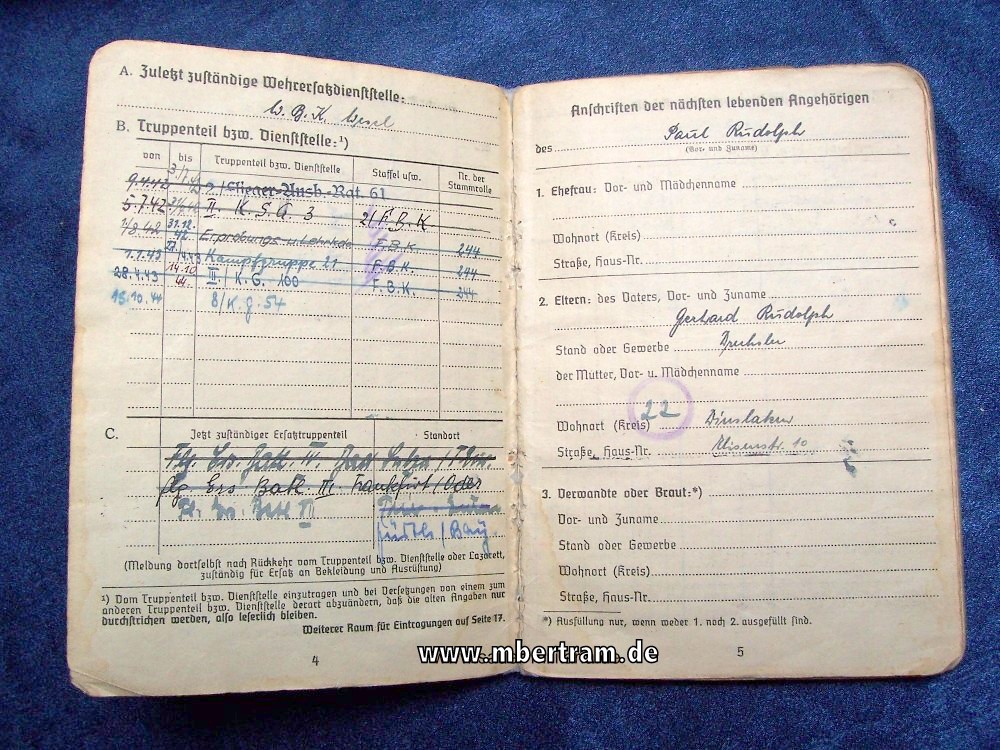 A. Zuletzt zuständige Wehrersatzdienststelle:
W. B. K. Wesel
B. Truppenteil bzw. Dienststelle:¹)
von bis Truppenteil bzw. Dienststelle Staffel usw. Nr. der Stammrolle
9.4.42 Flieger-Ausb.-Rgt. 61
5.7.42 II K. S. G. 3 F.B.K.
31.12. 42 Erprobungs u. Lehrkdo F.B.K. 244
1.1.43 Kampfgruppe 21 F.B.K. 244
28.4.43 14.10 44 III / K. G. 100 F.B.K. 244
15.10.44 8/K.G.54
C. Jetzt zuständiger Ersatztruppenteil Standort
Flg. Ers. Batl. III. Frankfurt/Oder
Fürth / Bay
(Meldung dortselbst nach Rückkehr vom Truppenteil bzw. Dienststelle oder Lazarett,
zuständig für Ersatz an Bekleidung und Ausrüstung)
¹) Vom Truppenteil bzw. Dienststelle einzutragen und bei Versetzungen von einem zum
anderen Truppenteil bzw. Dienststelle derart abzuändern, daß die alten Angaben nur
durchstrichen werden, also leserlich bleiben.
Weiterer Raum für Eintragungen auf Seite 17.
4
Anschriften der nächsten lebenden Angehörigen
des Paul Rudolph
(Vor- und Zuname)
1. Ehefrau: Vor- und Mädchenname
Wohnort (Kreis)
Straße, Haus-Nr.
2. Eltern: des Vaters, Vor- und Zuname
Gerhard Rudolph
Stand oder Gewerbe Drechsler
der Mutter, Vor- u. Mädchenname
22
Wohnort (Kreis) Dinslaken
Straße, Haus-Nr. 10
3. Verwandte oder Braut:*)
Vor- und Zuname
Stand oder Gewerbe
Wohnort (Kreis)
Straße, Haus-Nr.
*) Ausfüllung nur, wenn weder 1. noch 2. ausgefüllt sind.
5
www.mbertram.de